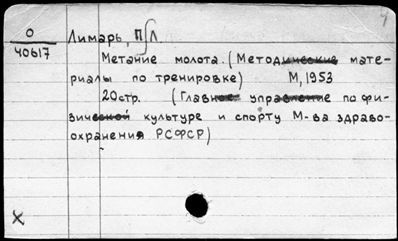 4
О
40617
Лимарь, П Л.
Метание молота. (Методические мате-
риалы по тренировке) М, 1953
20стр. (Главное управление по фи-
зической культуре и спорту М-ва здраво-
охранения РСФСР)
X